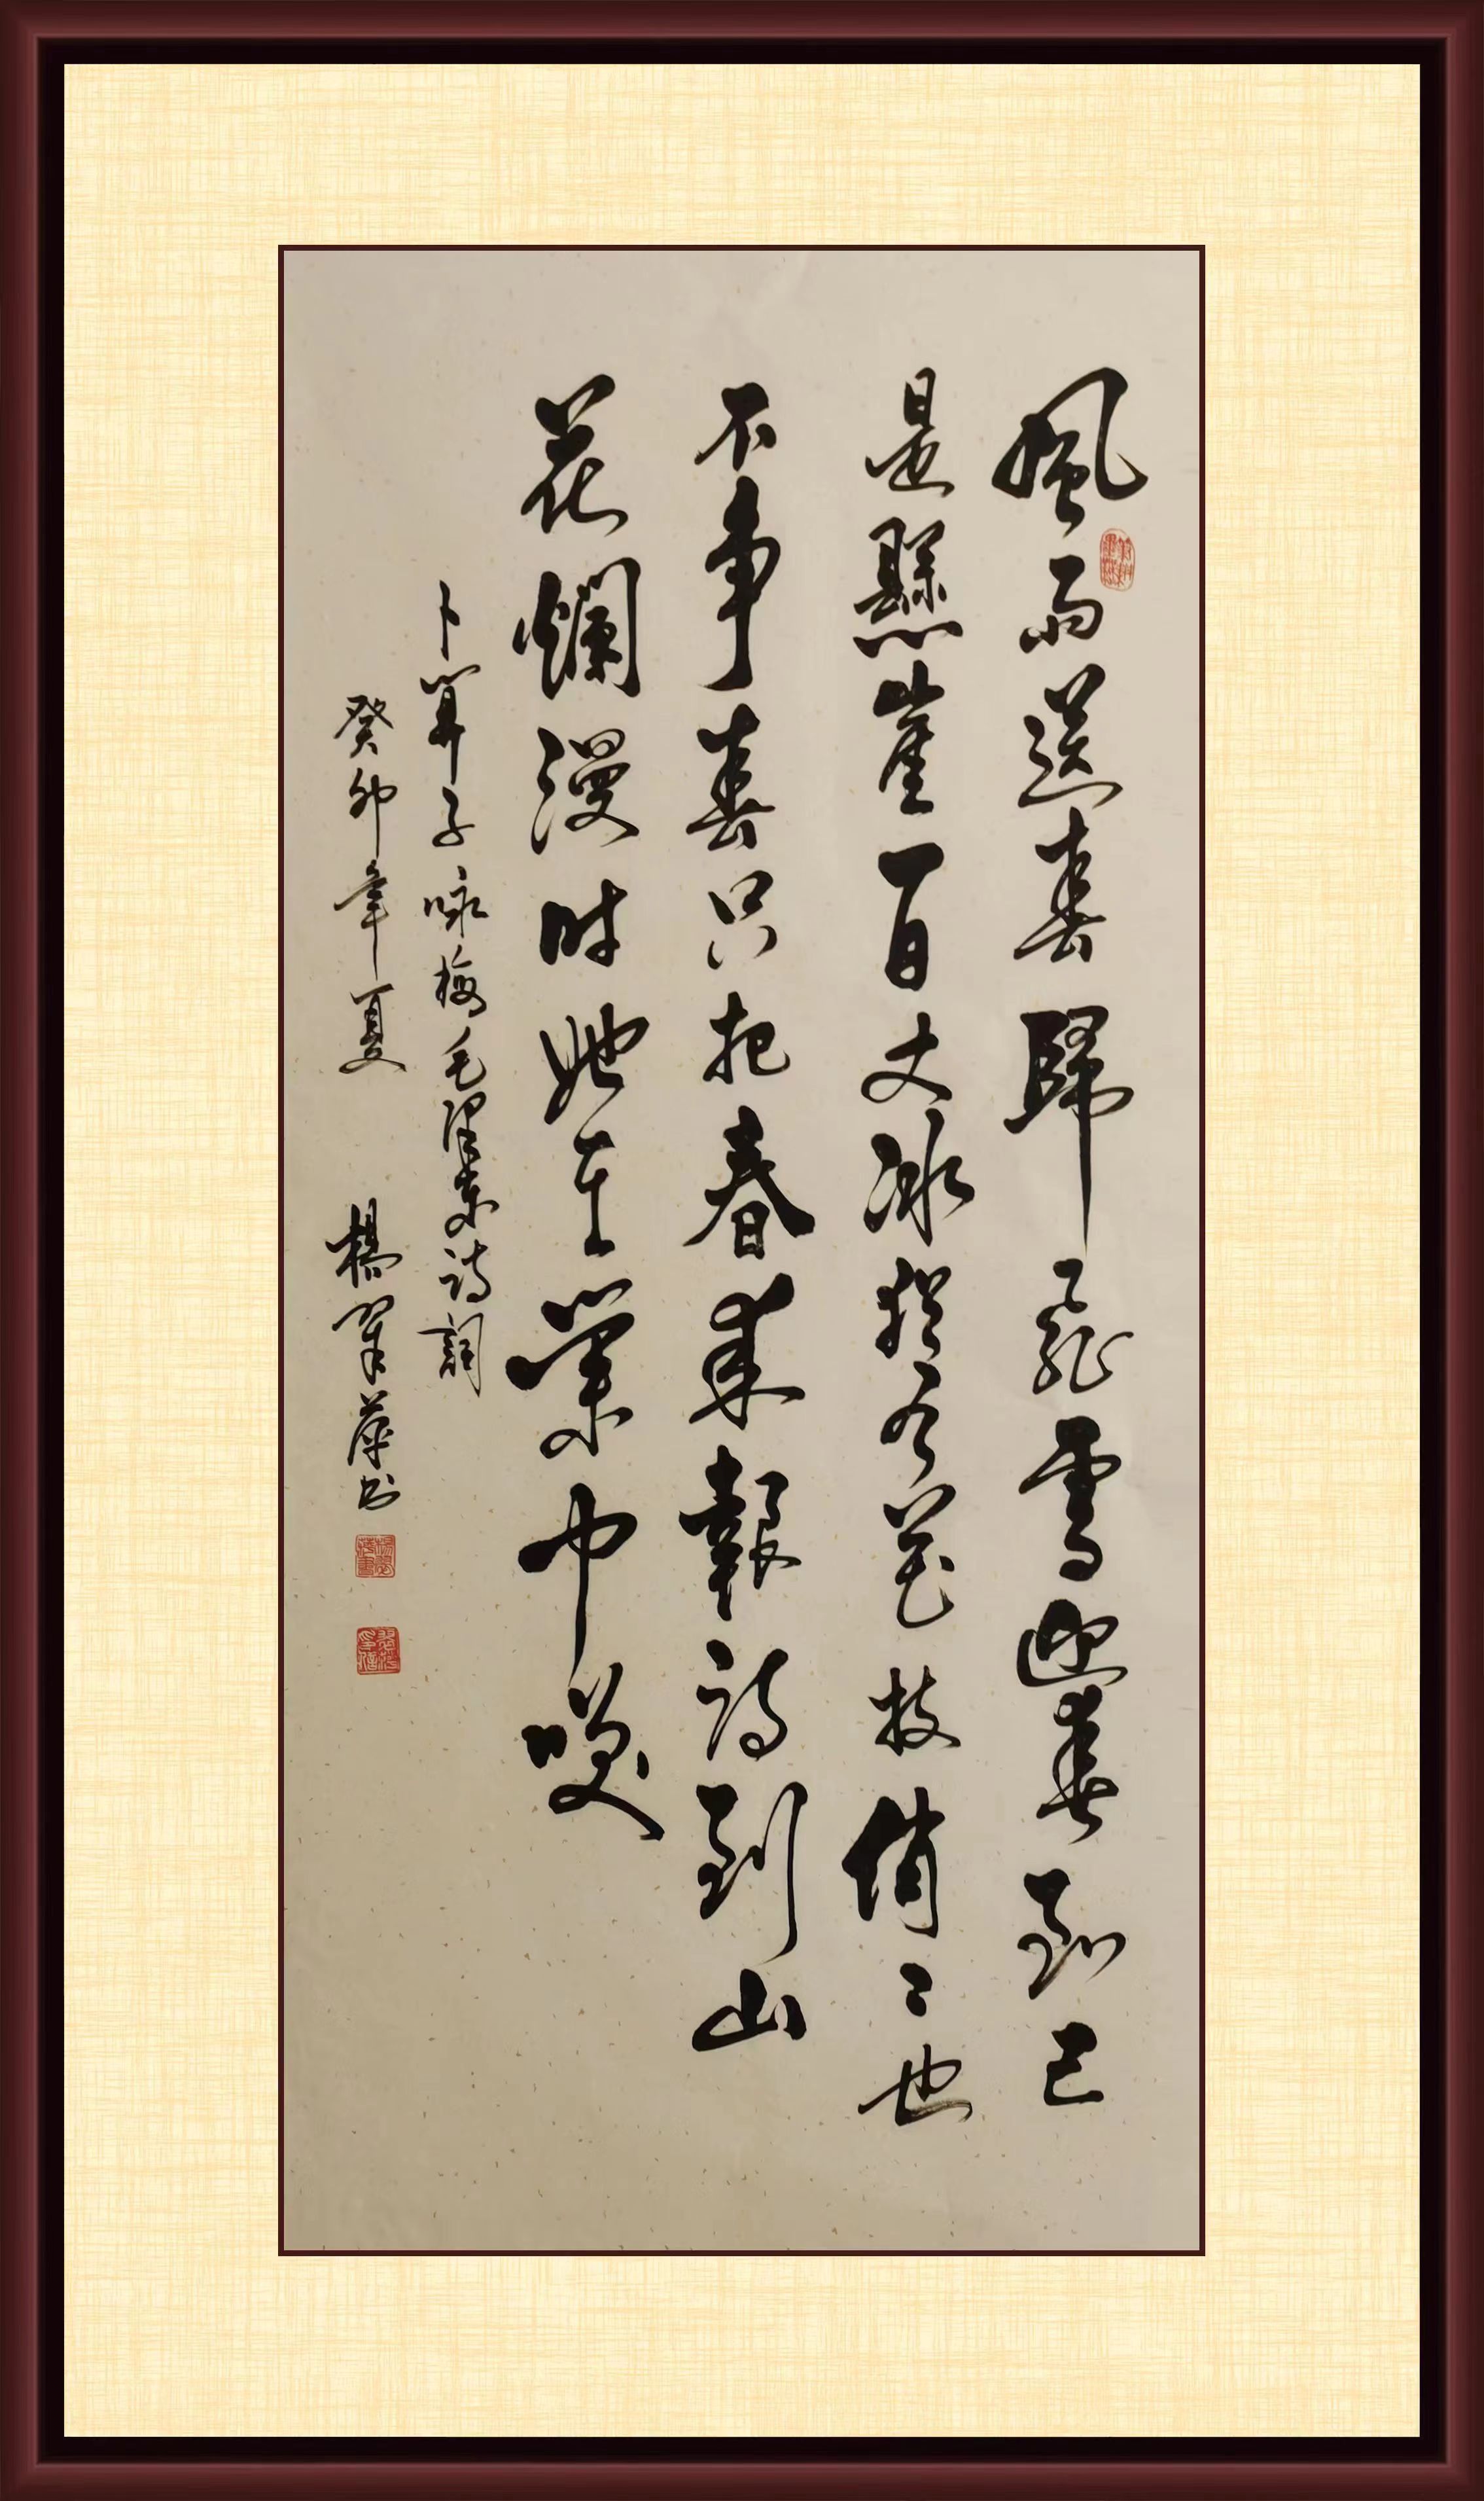 風雨送春歸飛雪迎春到已
是懸崖百丈冰猶有花枝俏〻也
不争春只把春來報待到山
花爛漫時她在叢中咲
卜算子咏梅毛澤東詩詞
癸卯年夏 楊翠萍书